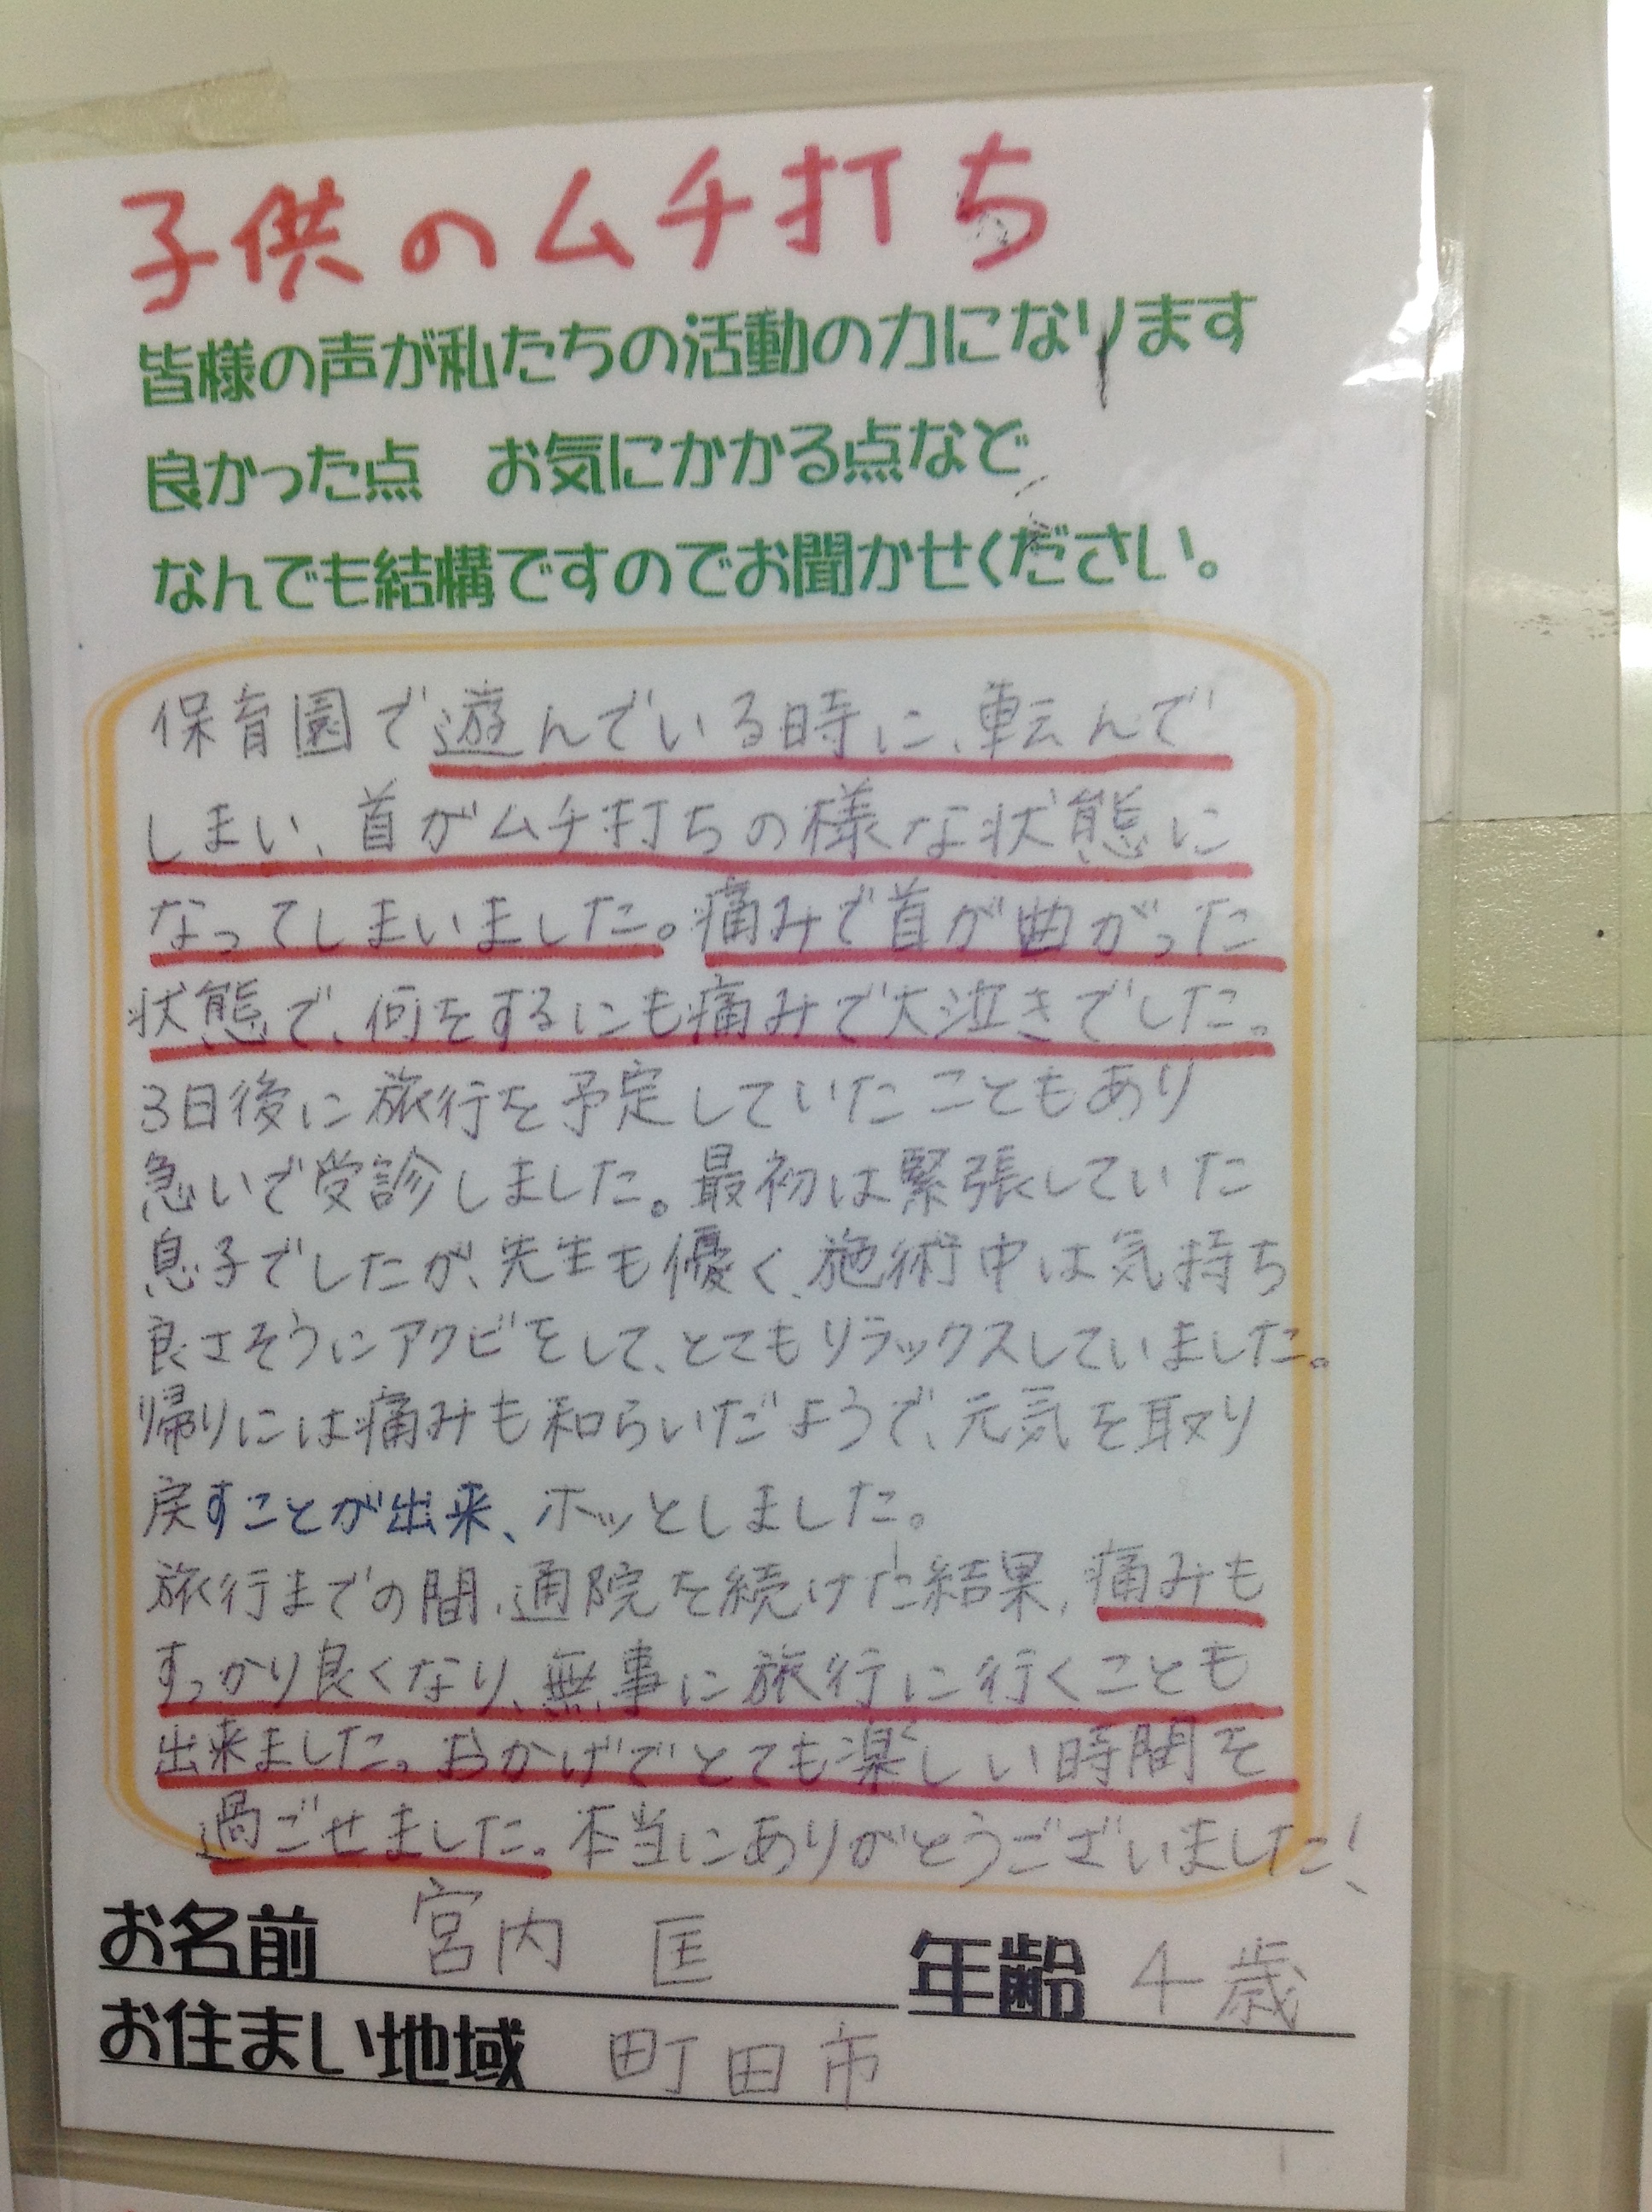 子供のムチ打ち
皆様の声が私たちの活動の力になります
良かった点 お気にかかる点など
なんでも結構ですのでお聞かせください。
保育園で遊んでいる時に、転んで
しまい、首がムチ打ちの様な状態に
なってしまいました。痛みで首が曲がった
状態で、何をするにも痛みで大泣きでした。
3日後に旅行を予定していたこともあり
急いで受診しました。最初は緊張していた
息子でしたが、先生も優く、施術中は気持ち
良さそうにアクビをして、とてもリラックスしていました。
帰りには痛みも和らいだようで、元気を取り
戻すことが出来、ホッとしました。
旅行までの間、通院を続けた結果、痛みも
すっかり良くなり、無事に旅行に行くことも
出来ました。おかげでとても楽しい時間を
過ごせました。本当にありがとうございました!
お名前 宮内 匡 年齢 4歳
お住まい地域 町田市